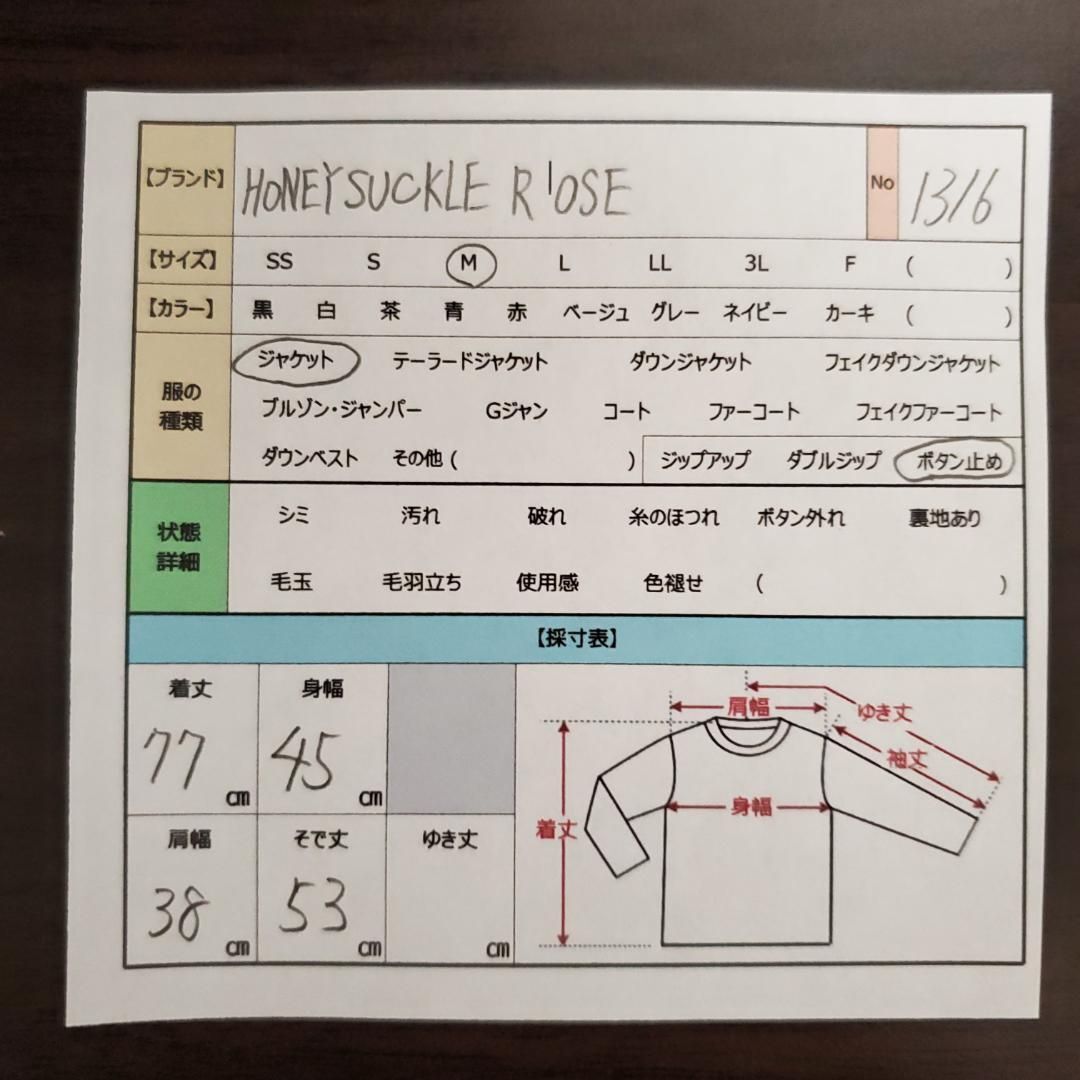 【ブランド】 HONEYSUCKLE R'OSE No 1316
【サイズ】 SS S M L LL 3L F ( )
【カラー】 黒 白 茶 青 赤 ベージュ グレー ネイビー カーキ ( )
服の種類 ジャケット テーラードジャケット ダウンジャケット フェイクダウンジャケット
ブルゾン・ジャンパー Gジャン コート ファーコート フェイクファーコート
ダウンベスト その他 ( ) ジップアップ ダブルジップ ボタン止め
状態詳細 シミ 汚れ 破れ 糸のほつれ ボタン外れ 裏地あり
毛玉 毛羽立ち 使用感 色褪せ ( )
【採寸表】
着丈 身幅
77 cm 45 cm
肩幅 そで丈 ゆき丈
38 cm 53 cm cm
肩幅 ゆき丈
袖丈
身幅
着丈